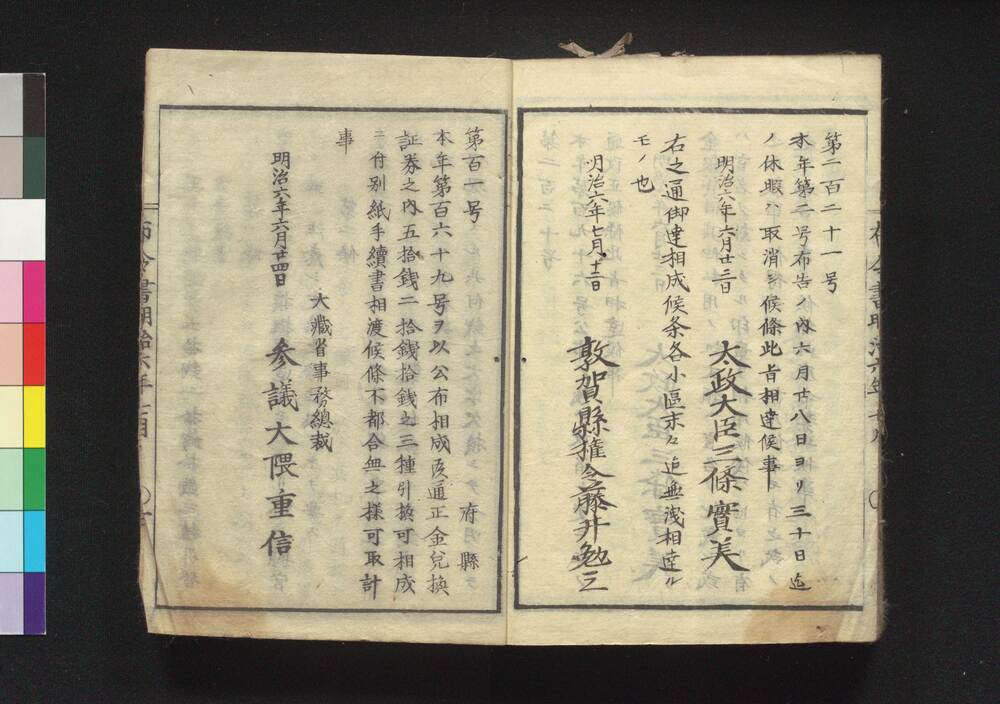 第二百二十一号
本年第二号布告ノ內六月廿八日ヨリ三十日迄
ノ休暇ハ取消シ候條此旨相達候事
明治六年六月廿三日
太政大臣三條實美
右之通御達相成候条各小區末々迄無洩相達ル
モノ也
明治六年七月十二日
敦賀縣權令藤井勉三
第百一号
府縣
本年第百六十九号ヲ以公布相成候通正金兌換
証券之內五拾錢二拾錢拾錢之三種引換可相成
ニ付別紙手續書相渡候條不都合無之様可取計
事
大藏省事務總裁
明治六年六月廿四日
参議大隈重信
布令書明治六年七月